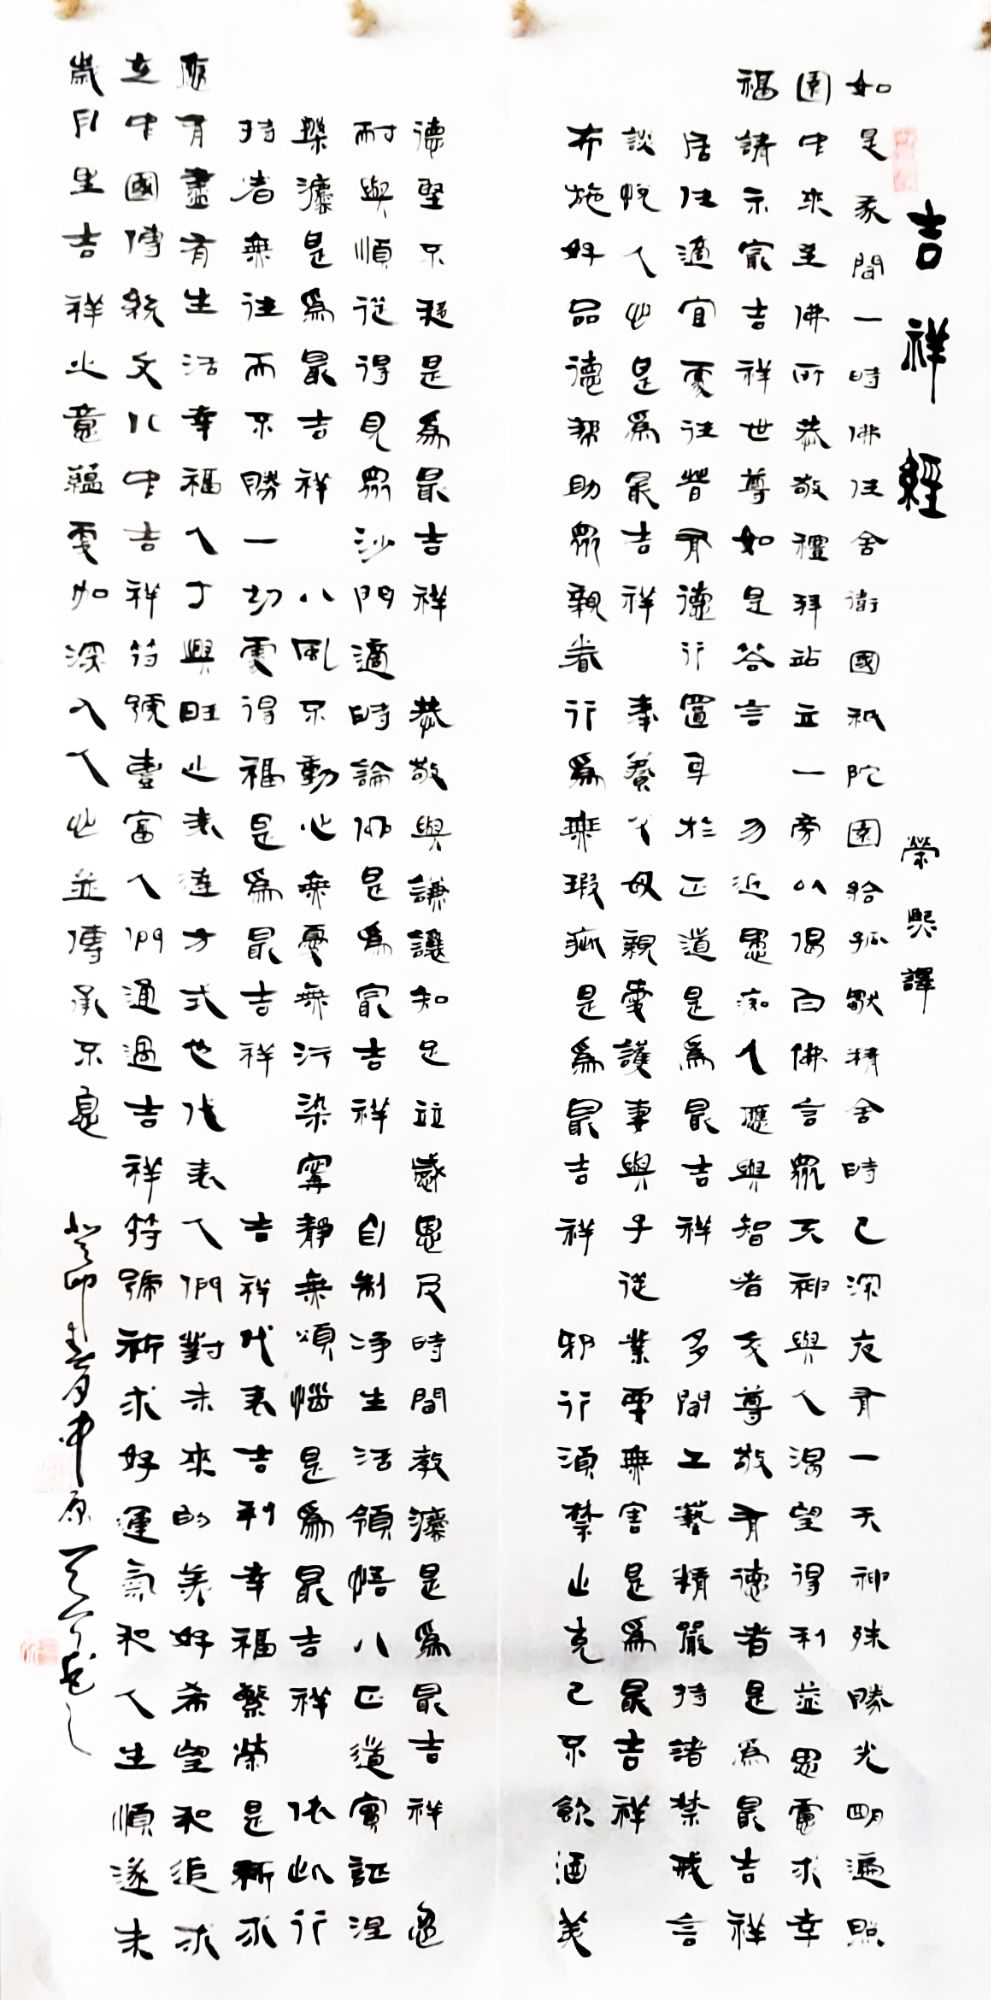 吉祥經
榮熙譯
如是我聞一時佛住舍衛國祇陀園給孤獨精舍時已深夜有一天神殊勝光明遍照
園中來至佛所恭敬禮拜站立一旁以偈白佛言眾天神與人渴望得利益思慮求幸
福請示最吉祥世尊如是答言 勿近愚痴人應與智者交尊敬有德者是為最吉祥
居住適宜處往昔有德行置身於正道是為最吉祥 多聞工藝精嚴持諸禁戒言
談悅人心是為最吉祥 奉養父母親愛護妻與子從業要無害是為最吉祥
布施好品德幫助眾親眷行為無瑕疵是為最吉祥 邪行須禁止克己不飲酒美
德堅不移是為最吉祥 恭敬與謙讓知足並感恩及時聞教法是為最吉祥 忍
耐與順從得見眾沙門適時論佛是為最吉祥 自制淨生活領悟八正道實証涅
槃法是為最吉祥 八風不動心無憂無污染寧靜無煩惱是為最吉祥 依此行
持者無往而不勝一切處得福是為最吉祥 吉祥代表吉利幸福繁榮是祈求
順有盡有生活幸福人丁興旺之表達方式也代表人們對未來的美好希望和追求
在中國傳統文化中吉祥符號豐富人們通過吉祥符號祈求好運氣和人生順遂未
歲月里吉祥之意蘊更加深入人心並傳承不息
癸卯 中原